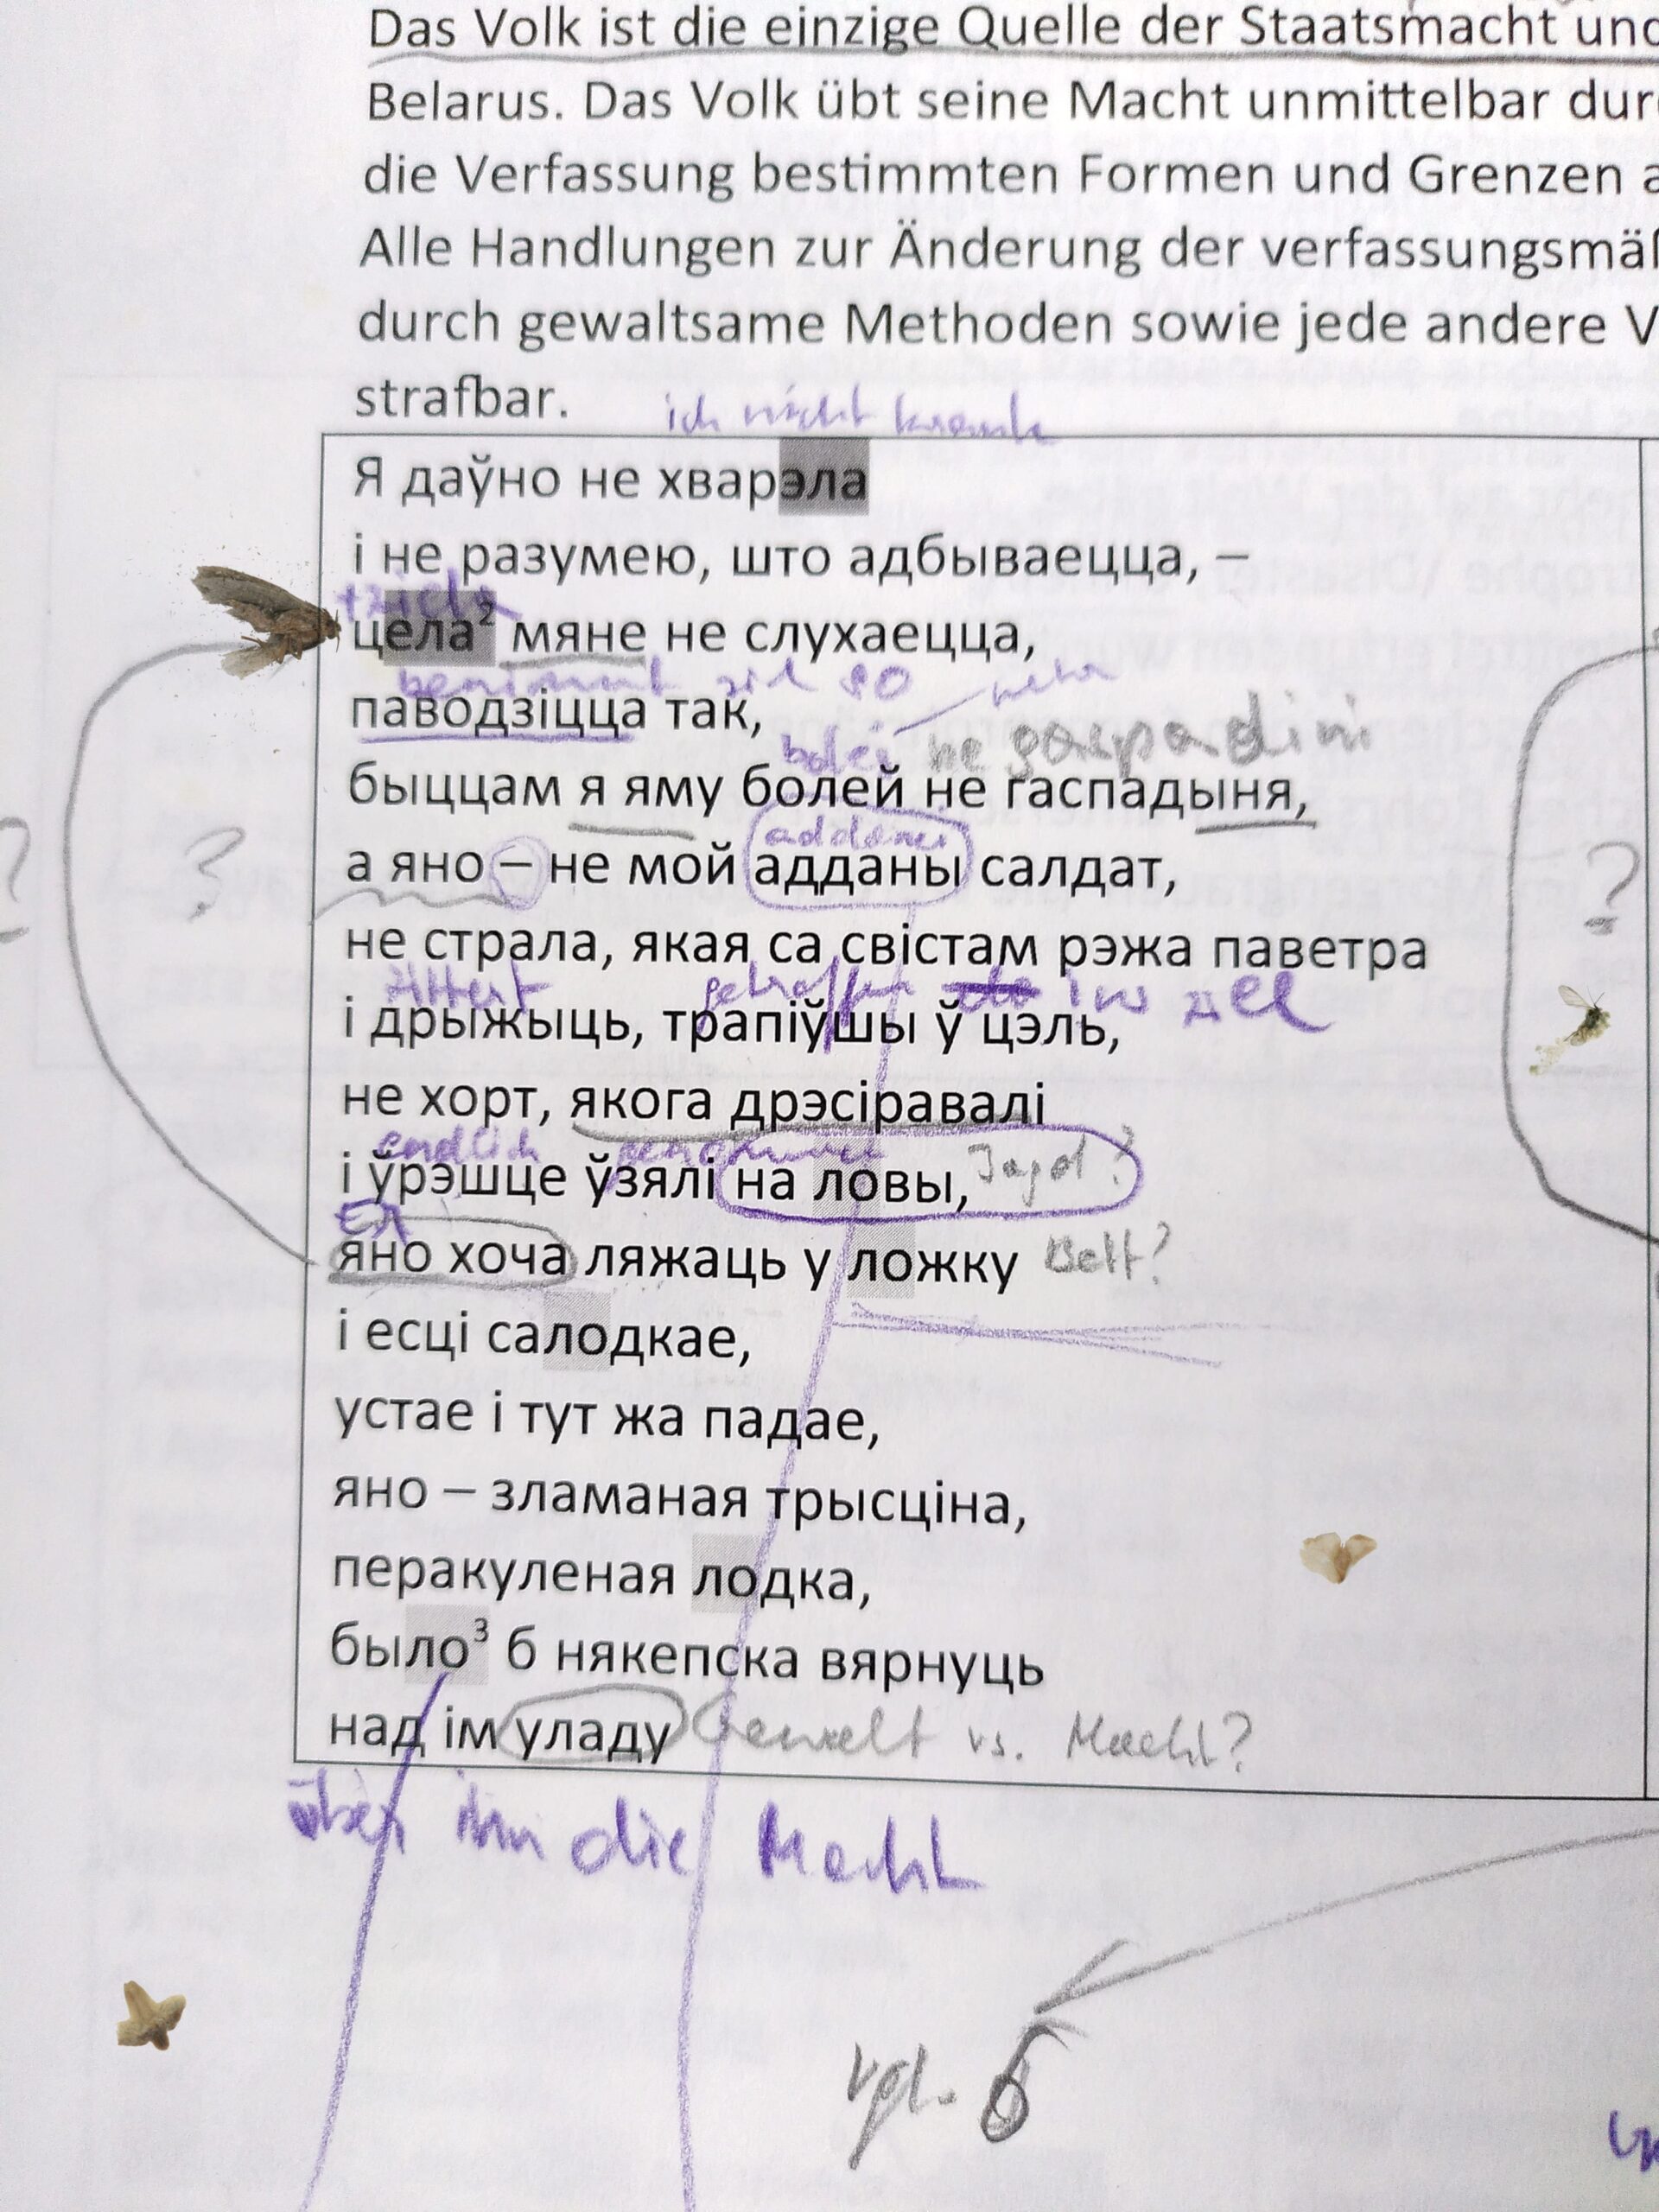 Das Volk ist die einzige Quelle der Staatsmacht und
Belarus. Das Volk übt seine Macht unmittelbar dur
die Verfassung bestimmten Formen und Grenzen a
Alle Handlungen zur Änderung der verfassungsmäß
durch gewaltsame Methoden sowie jede andere V
strafbar.
ich nicht krank
Я даўно не хварэла
і не разумею, што адбываецца, –
цела² мяне не слухаецца,
benimmt sich so
паводзіцца так,
bolei ne gaspadini
быццам я яму болей не гаспадыня,
addani
а яно – не мой адданы салдат,
?
?
?
не страла, якая са свістам рэжа паветра
zittert getroffen ins
і дрыжыць, трапіўшы ў цэль,
не хорт, якога дрэсіравалі
endlich genommen
і ўрэшце ўзялі на ловы, Jagd?
Er
яно хоча ляжаць у ложку Bett?
і есці салодкае,
устае і тут жа падае,
яно – зламаная трысціна,
перакуленая лодка,
было³ б някепска вярнуць
над ім уладу Gewalt vs. Macht?
über ihn die Macht
vgl. 6